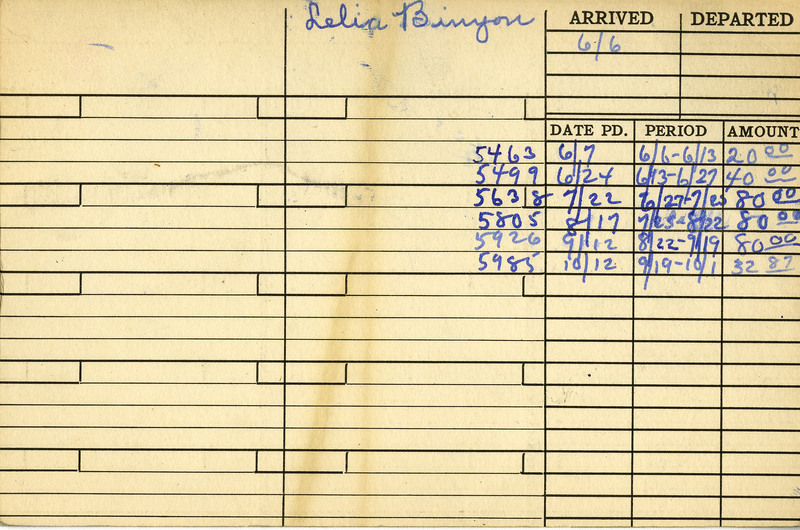 Lelia Binyon ARRIVED DEPARTED
6/6
DATE PD. PERIOD AMOUNT
5463 6/7 6/6-6/13 20 00
5499 6/24 6/13-6/27 40 00
5638 7/22 6/27-7/25 80 00
5805 8/17 7/25-8/22 80 00
5926 9/12 8/22-9/19 80 00
5985 10/12 9/19-10/1 32 87